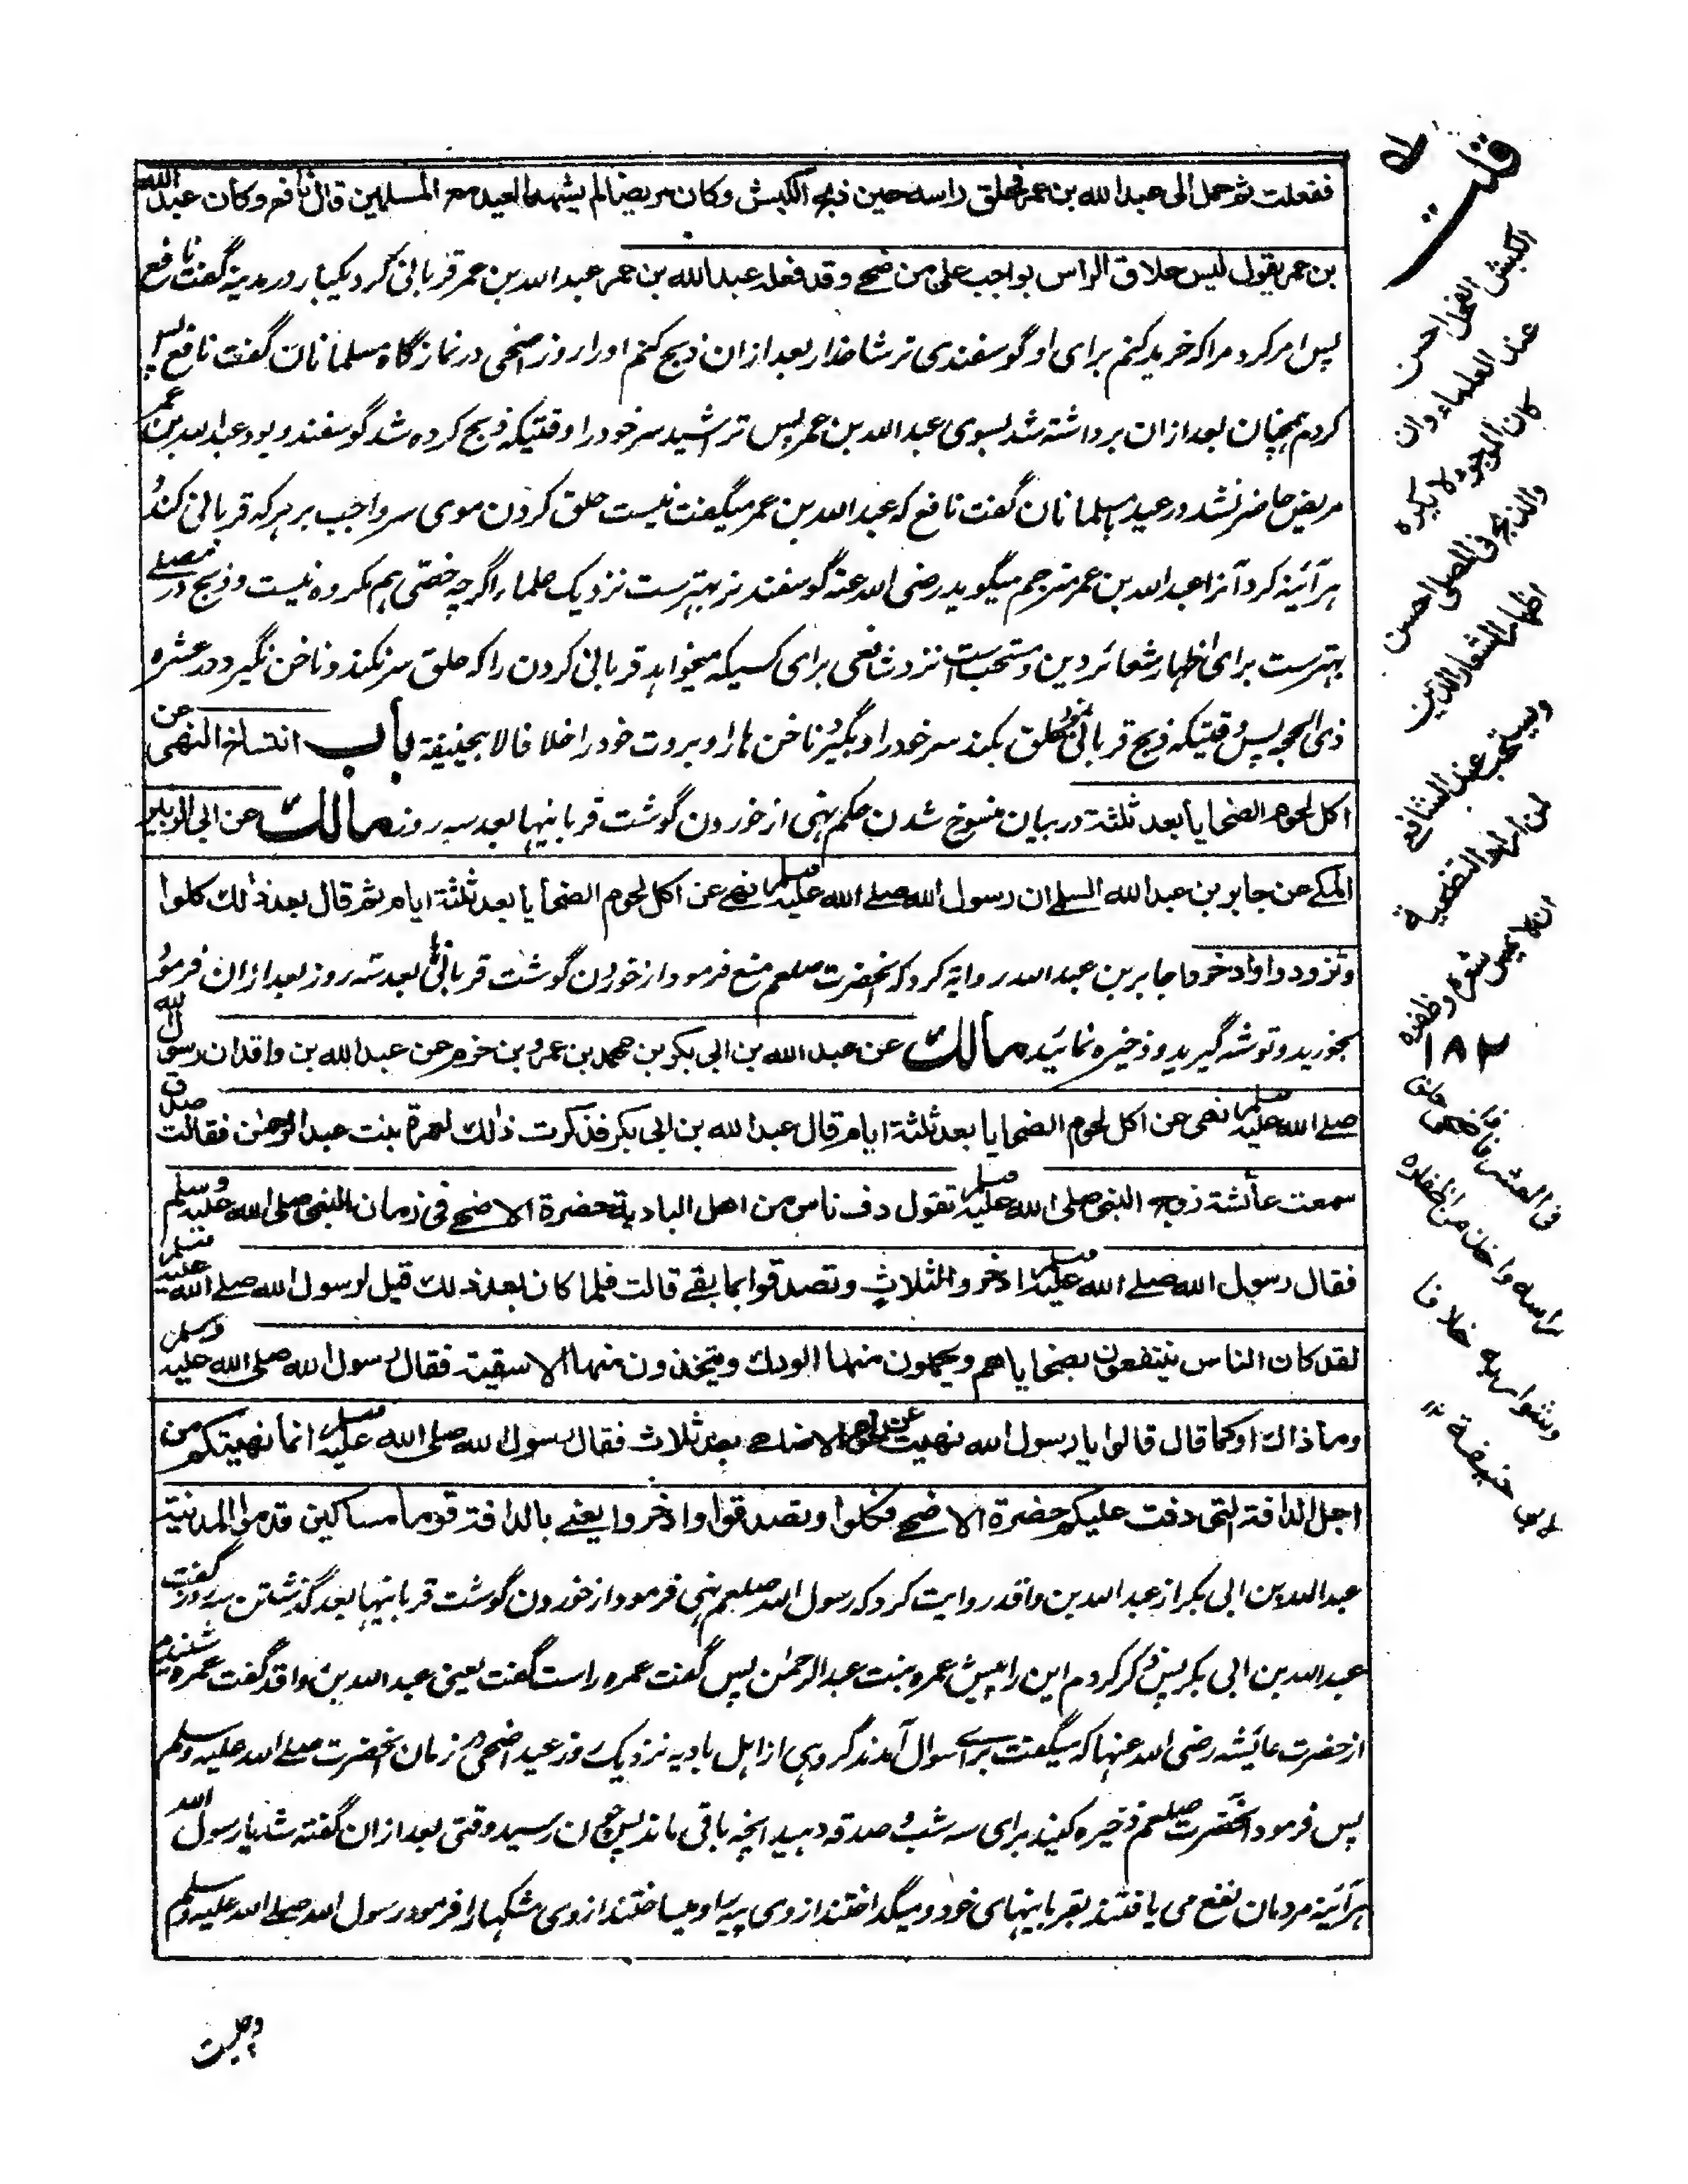 ففعلت ثم حمل الى عبد الله بن عمر فحلق راسه حين ذبح الكبش وكان مريضا لم يشهد العيد مع المسلمين قال نافع وكان عبد الله
بن عمر يقول ليس حلاق الراس بواجب على من ضحى وقد فعله عبد الله بن عمر عبد الله بن عمر قربانی کرد یکبار در مدینه گفت نافع
پس امر کرد مرا که خرید کنم برای او گوسفندی نر شاخدار بعد ازان ذبح کنم اورا روز اضحی در نمازگاه مسلمانان گفت نافع پس
کردم همچنان بعد ازان برداشته شد بسوی عبد الله بن عمر پس تراشید سر خود را وقتیکه ذبح کرده شد گوسفند و بود عبد الله بن عمر
مریض حاضر نشد در عید بمسلمانان گفت نافع که عبد الله بن عمر میگفت نیست حلق کردن موی سر واجب بر هر که قربانی کند و
هر آئینه کرد آنرا عبد الله بن عمر مترجم میگوید رضی الله عنه گوسفند نر بهترست نزدیک علما و اگرچه خصی هم مکروه نیست و ذبح در مصلے
بهترست برای اظهار شعائر دین و مستحب ست نزد شافعی برای کسیکه میخواهد قربانی کردن را که حلق سر نکند و ناخن نگیرد در عشره
ذی الحجه پس وقتیکه ذبح قربانی نمود حلق بکند سر خود را و بگیرد ناخن ها را و بروت خود را خلافا لابیحنیفة باب انتساخ النهی عن
اكل لحوم الضحايا بعد ثلثة در بیان منسوخ شدن حکم نهی از خوردن گوشت قربانیها بعد سه روز مالك عن ابی الزبیر
المكے عن جابر بن عبد الله السلمے ان رسول الله صلے الله عليه وسلم نهے عن اكل لحوم الضحايا بعد ثلثة ايام ثم قال بعد ذلك كلوا
وتزودوا وادخروا جابر بن عبد الله روایة کرد که آنحضرت صلعم منع فرمود از خوردن گوشت قربانی بعد سه روز بعد ازان فرمود
بخورید و توشه گیرید و ذخیره نمائید مالك عن عبد الله بن ابى بكر بن محمد بن عمرو بن حزم عن عبد الله بن واقد ان رسول الله
صلے الله عليه وسلم نهى عن اكل لحوم الضحايا بعد ثلثة ايام قال عبد الله بن ابى بكر فذكرت ذلك لعمرة بنت عبد الرحمن فقالت صدق
سمعت عائشة زوج النبى صلى الله عليه وسلم تقول دف ناس من اهل البادية حضرة الاضحے فى زمان النبى صلى الله عليه وسلم
فقال رسول الله صلے الله عليه وسلم ادخروا لثلاث وتصدقوا بما بقے قالت فلما كان بعد ذلك قيل لرسول الله صلے الله عليه وسلم
لقد كان الناس ينتفعون بضحاياهم ويجملون منها الودك ويتخذون منها الاسقية فقال رسول الله صلى الله عليه وسلم
وما ذاك او كما قال قالوا يا رسول الله نهيت عن لحوم الاضاحے بعد ثلاث فقال رسول الله صلى الله عليه وسلم انما نهيتكم من
اجل الدافة التى دفت عليكم حضرة الاضحے فكلوا وتصدقوا وادخروا يعنے بالدافة قوما مساكين قدموا المدينة
عبد الله بن ابی بکر از عبد الله بن واقد روایت کرد که رسول الله صلعم نهی فرمود از خوردن گوشت قربانیها بعد گذشتن سه روز گفت
عبد الله بن ابی بکر پس ذکر کردم این را پیش عمره بنت عبد الرحمن پس گفت عمره راست گفت یعنی عبد الله بن واقد گفت عمره شنیدم
از حضرت عائشه رضی الله عنها که میگفت برای سوال آمدند گروهی از اهل بادیه نزدیک روز عید اضحی در زمان آنحضرت صلے الله علیه وسلم
پس فرمود آنحضرت صلعم ذخیره کنید برای سه شب و صدقه دهید آنچه باقی ماند پس چون رسید وقتی بعد ازان گفته شد یا رسول الله
هر آئینه مردمان نفع می یافتند بقربانیهای خود و میگداختند از وی پیه را و میساختند از وی مشکها را فرمود رسول الله صلے الله علیه وسلم
قلت
الكبش الفحل احسن
عند العلماء وان
كان الموجوء لا يكره
والذبح فى المصلى احسن
اظهارا لشعار الدين
ويستحب عند الشافعے
لمن اراد التضحية
ان لا يمس شعره وظفره
١٨٢
فى العشر فاذا ضحى حلق
راسه واخذ من اظفاره
وشواربه خلافا
لابى حنيفة